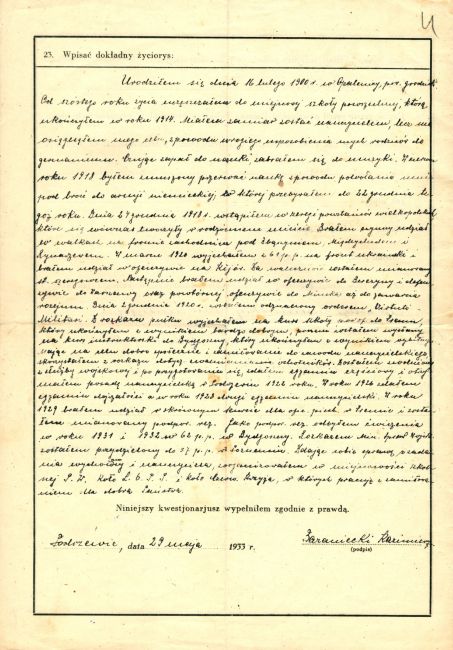 4
23. Wpisać dokładny życiorys:
Urodziłem się dnia 16 lutego 1900 r. w Opalenicy, pow. grodzisk
Od szóstego roku życia uczęszczałem do miejscowej szkoły powszechnej, którą
ukończyłem w roku 1914. Miałem zamiar zostać nauczycielem, lecz nie
osiągnąłem mego celu, spowodu wrogiego usposobienia mych rodziców do
germanizmu. Czując zapał do nauki, zabrałem się do muzyki. W
roku 1918 byłem zmuszony przerwać naukę spowodu powołania mnie
pod broń do armji niemieckiej, w której przebywałem do 22 grudnia te-
goż roku. Dnia 27 grudnia 1918 r. wstąpiłem w szeregi powstańców wielkopolskich
które się wówczas tworzyły w rodzinnem mieście. Brałem czynny udział
w walkach na froncie zachodnim pod Zbąszyniem, Międzychodem i
W marcu 1920 wyjechałem z p.p. na front ukraiński i
brałem udział w ofensywie na Kijów. Za waleczność zostałem mianowany
st. szeregowcem. Następnie brałem udział w ofensywie do Berezyny i defen-
sywie do Warszawy oraz powtórnej ofensywie do Mińska aż do zawarcia
rozejmu. Dnia 2 grudnia 1920 r. zostałem odznaczony orderem "Virtuti
Militari". Z rozkazu pułku wyjechałem na kurs szkoły podof. do
który ukończyłem z wynikiem bardzo dobrym, poczem zostałem wysłany
na kurs instruktorski do Bydgoszczy, który ukończyłem z wynikiem
Mając na celu dobro społeczne i zamiłowanie do zawodu nauczycielskiego
skorzystałem z rozkazu dotyczącego zwolnienia ochotników. Zostałem zwolniony
z służby wojskowej i po przygotowaniu się, zdałem egzamin częściowy i obją-
łem posadę nauczycielską w 1922 roku. W roku 1926 zdałem
egzamin dojrzałości a w roku 1928 drugi egzamin nauczycielski. W roku
1929 brałem udział w skróconym kursie dla ofic. piech. w i zosta-
łem mianowany podpor. rez. Jako podpor. rez. odbyłem ćwiczenia
w roku 1931 i 1932 w 62 p.p. w Bydgoszczy. Rozkazem Min. Spraw Wojsk.
zostałem przydzielony do 57 p.p. w Poznaniu. Zdając sobie sprawę z zada-
nia wychowawcy i nauczyciela, zorganizowałem w miejscowości szkol-
nej P.W. koło L.O.P.P. i koło Czerw. Krzyża, w których pracuję z zamiłowa-
niem dla dobra Państwa.
Niniejszy kwestjonarjusz wypełniłem zgodnie z prawdą.
data 29 maja 1933 r. Baraniecki Kazimierz
(podpis)